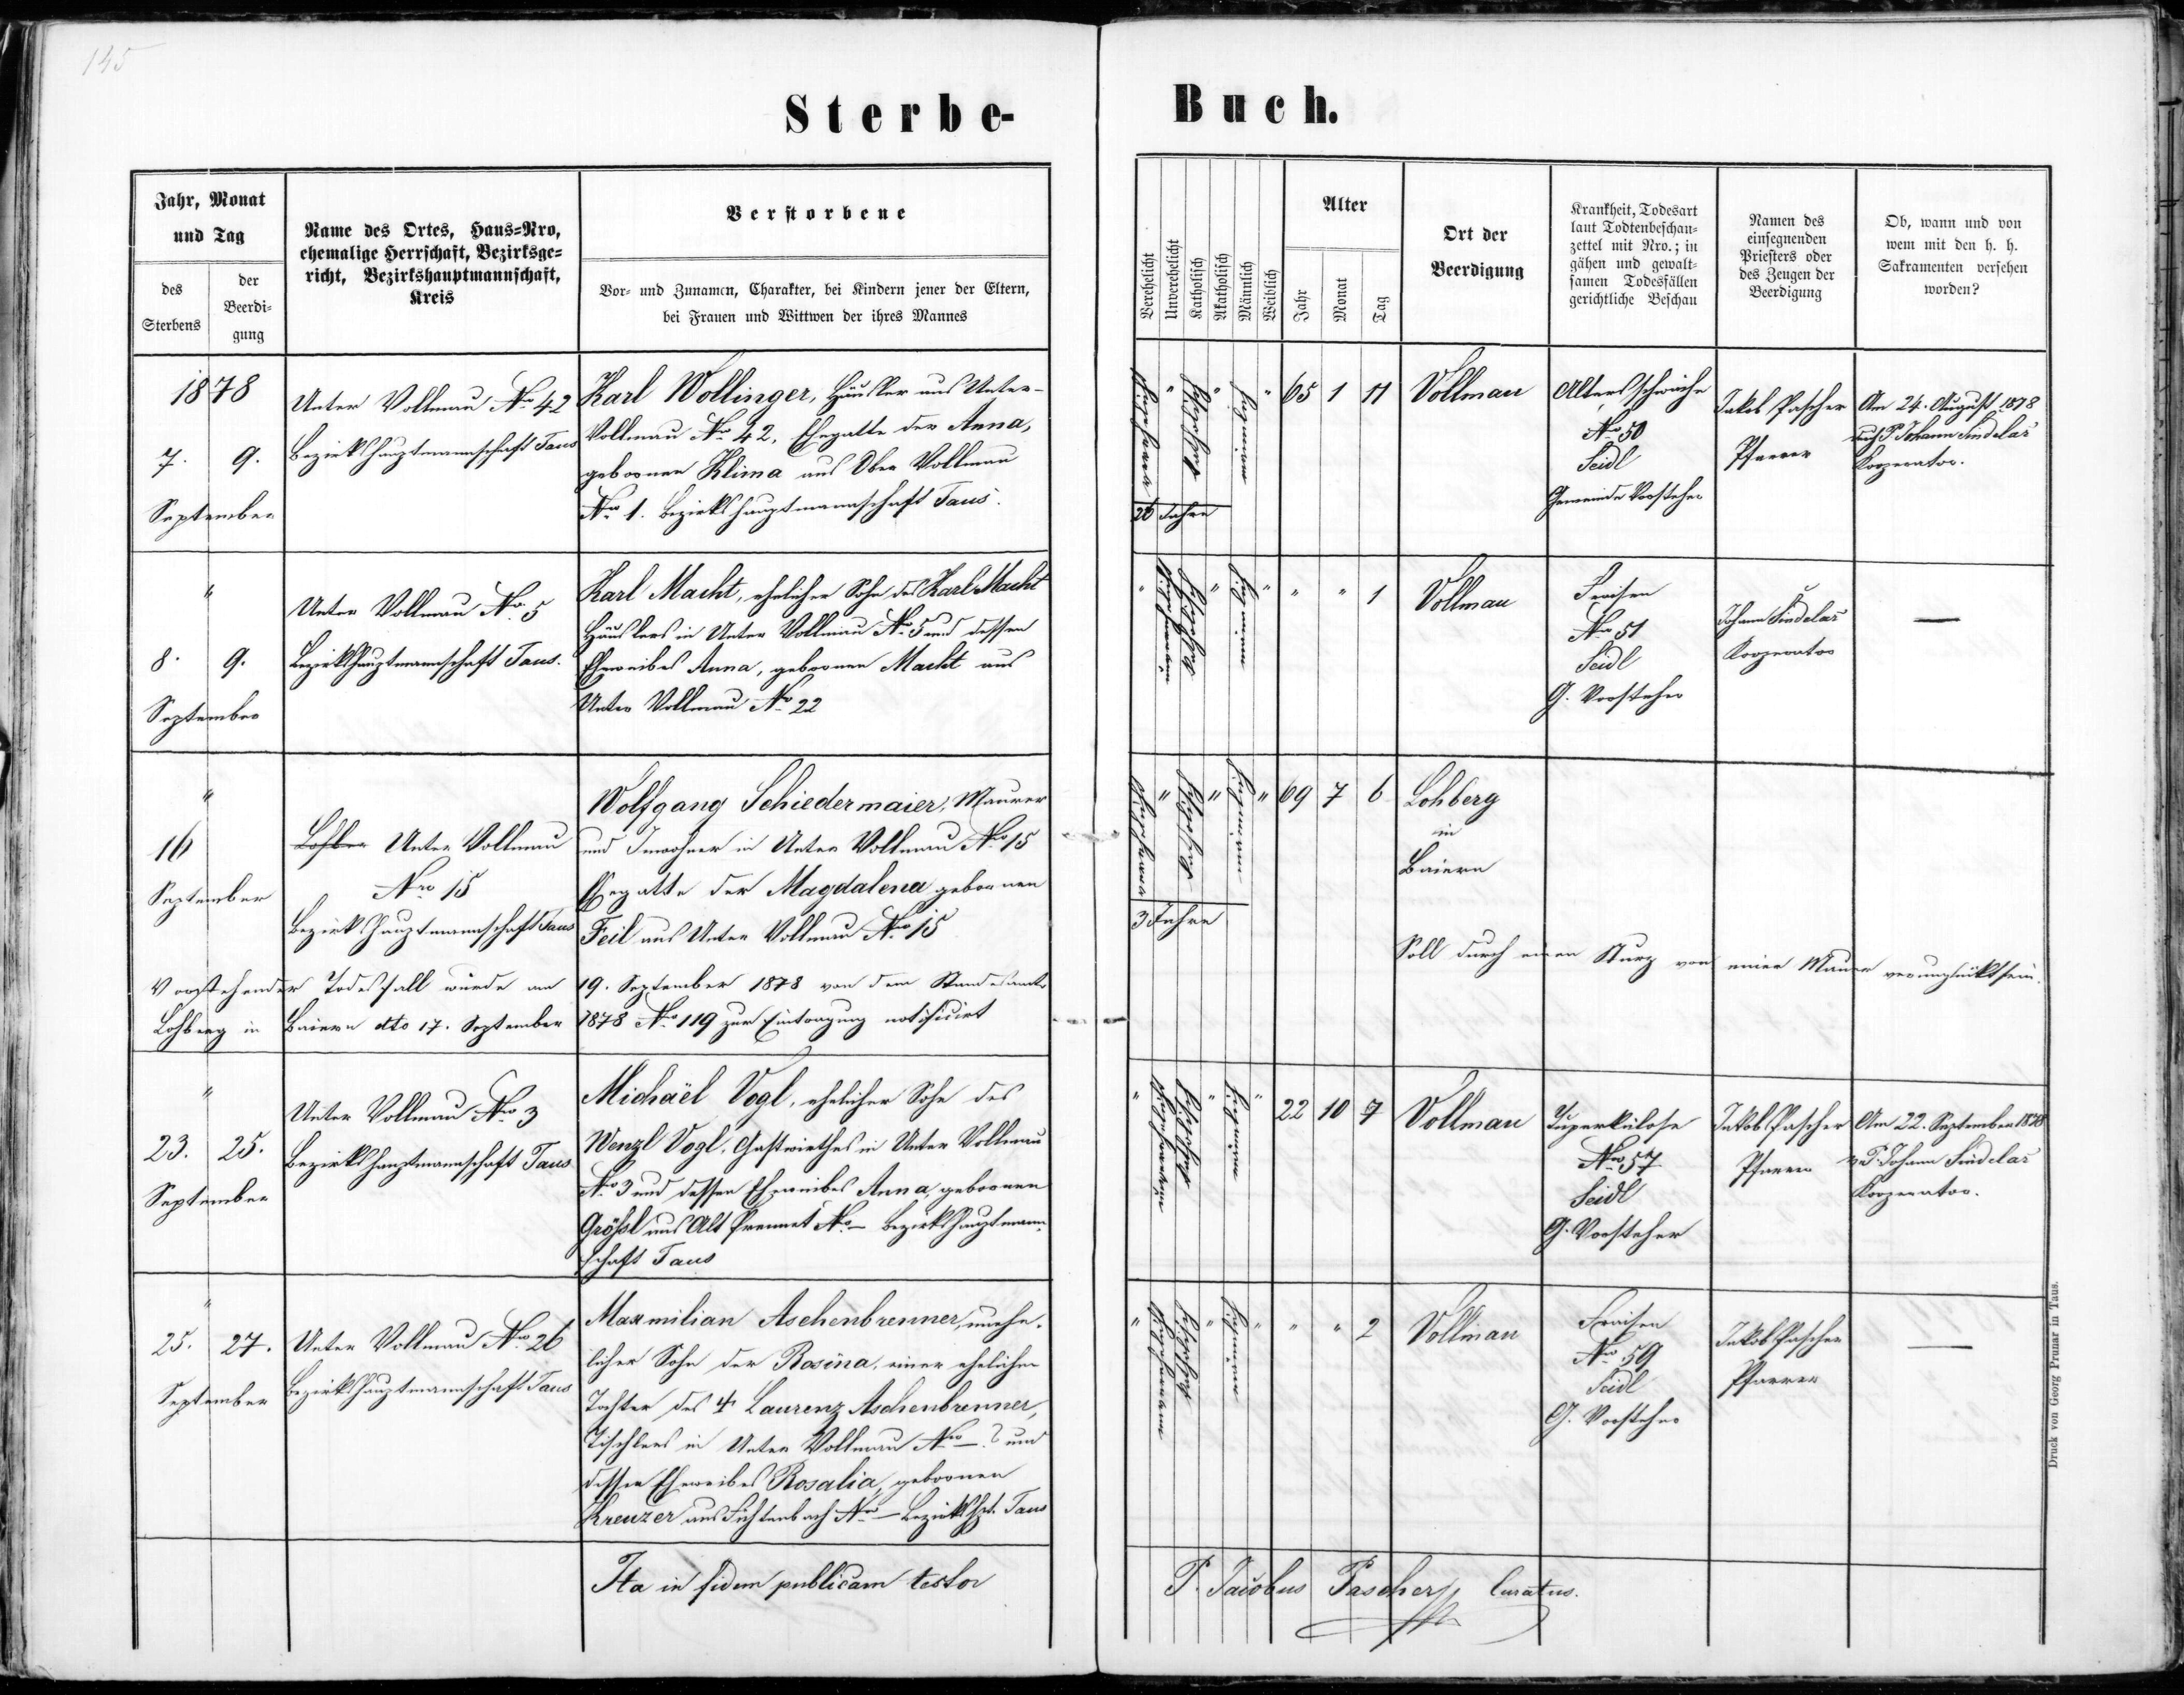 145
Sterbe-
Buch.
Jahr, Monat
und Tag
des
Sterbens
der
Beerdi-
gung
Name des Ortes, Haus-Nro,
ehemalige Herrschaft, Bezirksge-
richt, Bezirkshauptmannschaft,
Kreis
Verstorbene
Vor- und Zunamen, Charakter, bei Kindern jener der Eltern,
bei Frauen und Wittwen der ihres Mannes
Verehelicht
Unverehelicht
Katholisch
Akatholisch
Männlich
Weiblich
Alter
Jahr
Monat
Tag
Ort der
Beerdigung
Krankheit, Todesart
laut Todtenbeschau-
zettel mit Nro.; in
gähen und gewalt-
samen Todesfällen
gerichtliche Beschau
Namen des
einsegnenden
Priesters oder
des Zeugen der
Beerdigung
Ob, wann und von
wem mit den h. h.
Sakramenten versehen
worden?
1878
7. 9.
September
Unter Vollmau Nro 42
Bezirkshauptmannschaft Taus
Karl Wollinger, Häusler aus Unter-
Vollmau Nro 42, Ehegatte der Anna,
gebornen Klima aus Ober Vollmau
Nro 1. Bezirkshauptmannschaft Taus.
" " "
26 Jahre
65 1 11
Vollmau
Altersschwäche
Nro 50
Seidl
Gemeinde Vorsteher
Jakob Pascher
Pfarrer
Am 24. August 1878
durch P. Johann Sindelař
Kooperator.
"
8. 9.
September
Unter Vollmau Nro 5
Bezirkshauptmannschaft Taus.
Karl Macht, ehelicher Sohn des Karl Macht
Häuslers in Unter Vollmau Nro 5 und dessen
Eheweibes Anna, gebornen Macht aus
Unter Vollmau Nro 22
" " "
" " 1
Vollmau
Fraisen
Nro 51
Seidl
G. Vorsteher
Johann Sindelař
Kooperator
—
"
16
September
Unter Vollmau
Nro 15
Bezirkshauptmannschaft Taus
Wolfgang Schiedermaier, Maurer
und Inwohner in Unter Vollmau Nro 15
Ehegatte der Magdalena gebornen
Feil aus Unter Vollmau Nro 15
Vorstehender Todesfall wurde am 19. September 1878 von dem Standesamte
Lohberg in Baiern dto 17. September 1878 Nro 119 zur Eintragung notificirt
" " "
3 Jahre
69 7 6
Lohberg
in
Baiern
Soll durch einen Sturz von einer Mauer verunglückt sein.
"
23. 25.
September
Unter Vollmau Nro 3
Bezirkshauptmannschaft Taus
Michaël Vogl, ehelicher Sohn des
Wenzl Vogl, Gastwirthes in Unter Vollmau
Nro 3 und dessen Eheweibes Anna, gebornen
Größl aus Alt Prennet Nro — Bezirkshauptmann-
schaft Taus
" " "
22 10 7
Vollmau
Tuperkulose
Nro 57
Seidl
G. Vorsteher
Jakob Pascher
Pfarrer
Am 22. September 1878
v. P. Johann Sindelař
Kooperator.
"
25. 27.
September
Unter Vollmau Nro 26
Bezirkshauptmannschaft Taus
Maxmilian Aschenbrenner, unehe-
licher Sohn der Rosina, einer ehelichen
Tochter des † Laurenz Aschenbrenner,
Tischlers in Unter Vollmau Nro —? und
dessen Eheweibes Rosalia, gebornen
Kreuzer aus Fichtenbach Nro — Bezirkshpt. Taus
" " "
" " 2
Vollmau
Fraisen
Nro 59
Seidl
G. Vorsteher
Jakob Pascher
Pfarrer
—
Ita in fidem publicam testor
P. Jacobus Pascher, Curatus.
Druck von Georg Prunar in Taus.